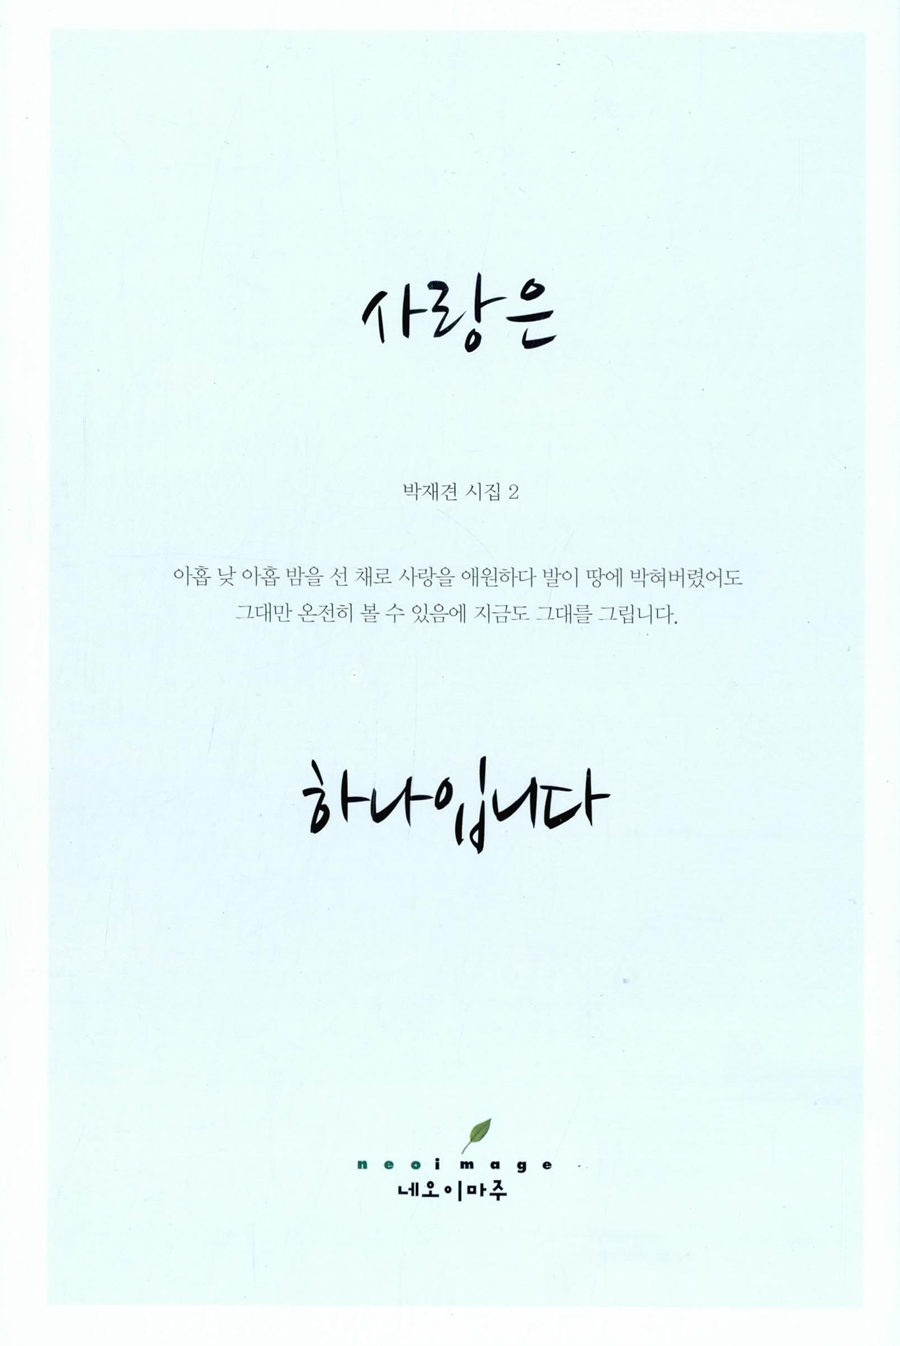 사랑은
박재견 시집 2
아홉 낮 아홉 밤을 선 채로 사랑을 애원하다 발이 땅에 박혀버렸어도
그대만 온전히 볼 수 있음에 지금도 그대를 그립니다.
하나입니다
neoimage
네오이마주